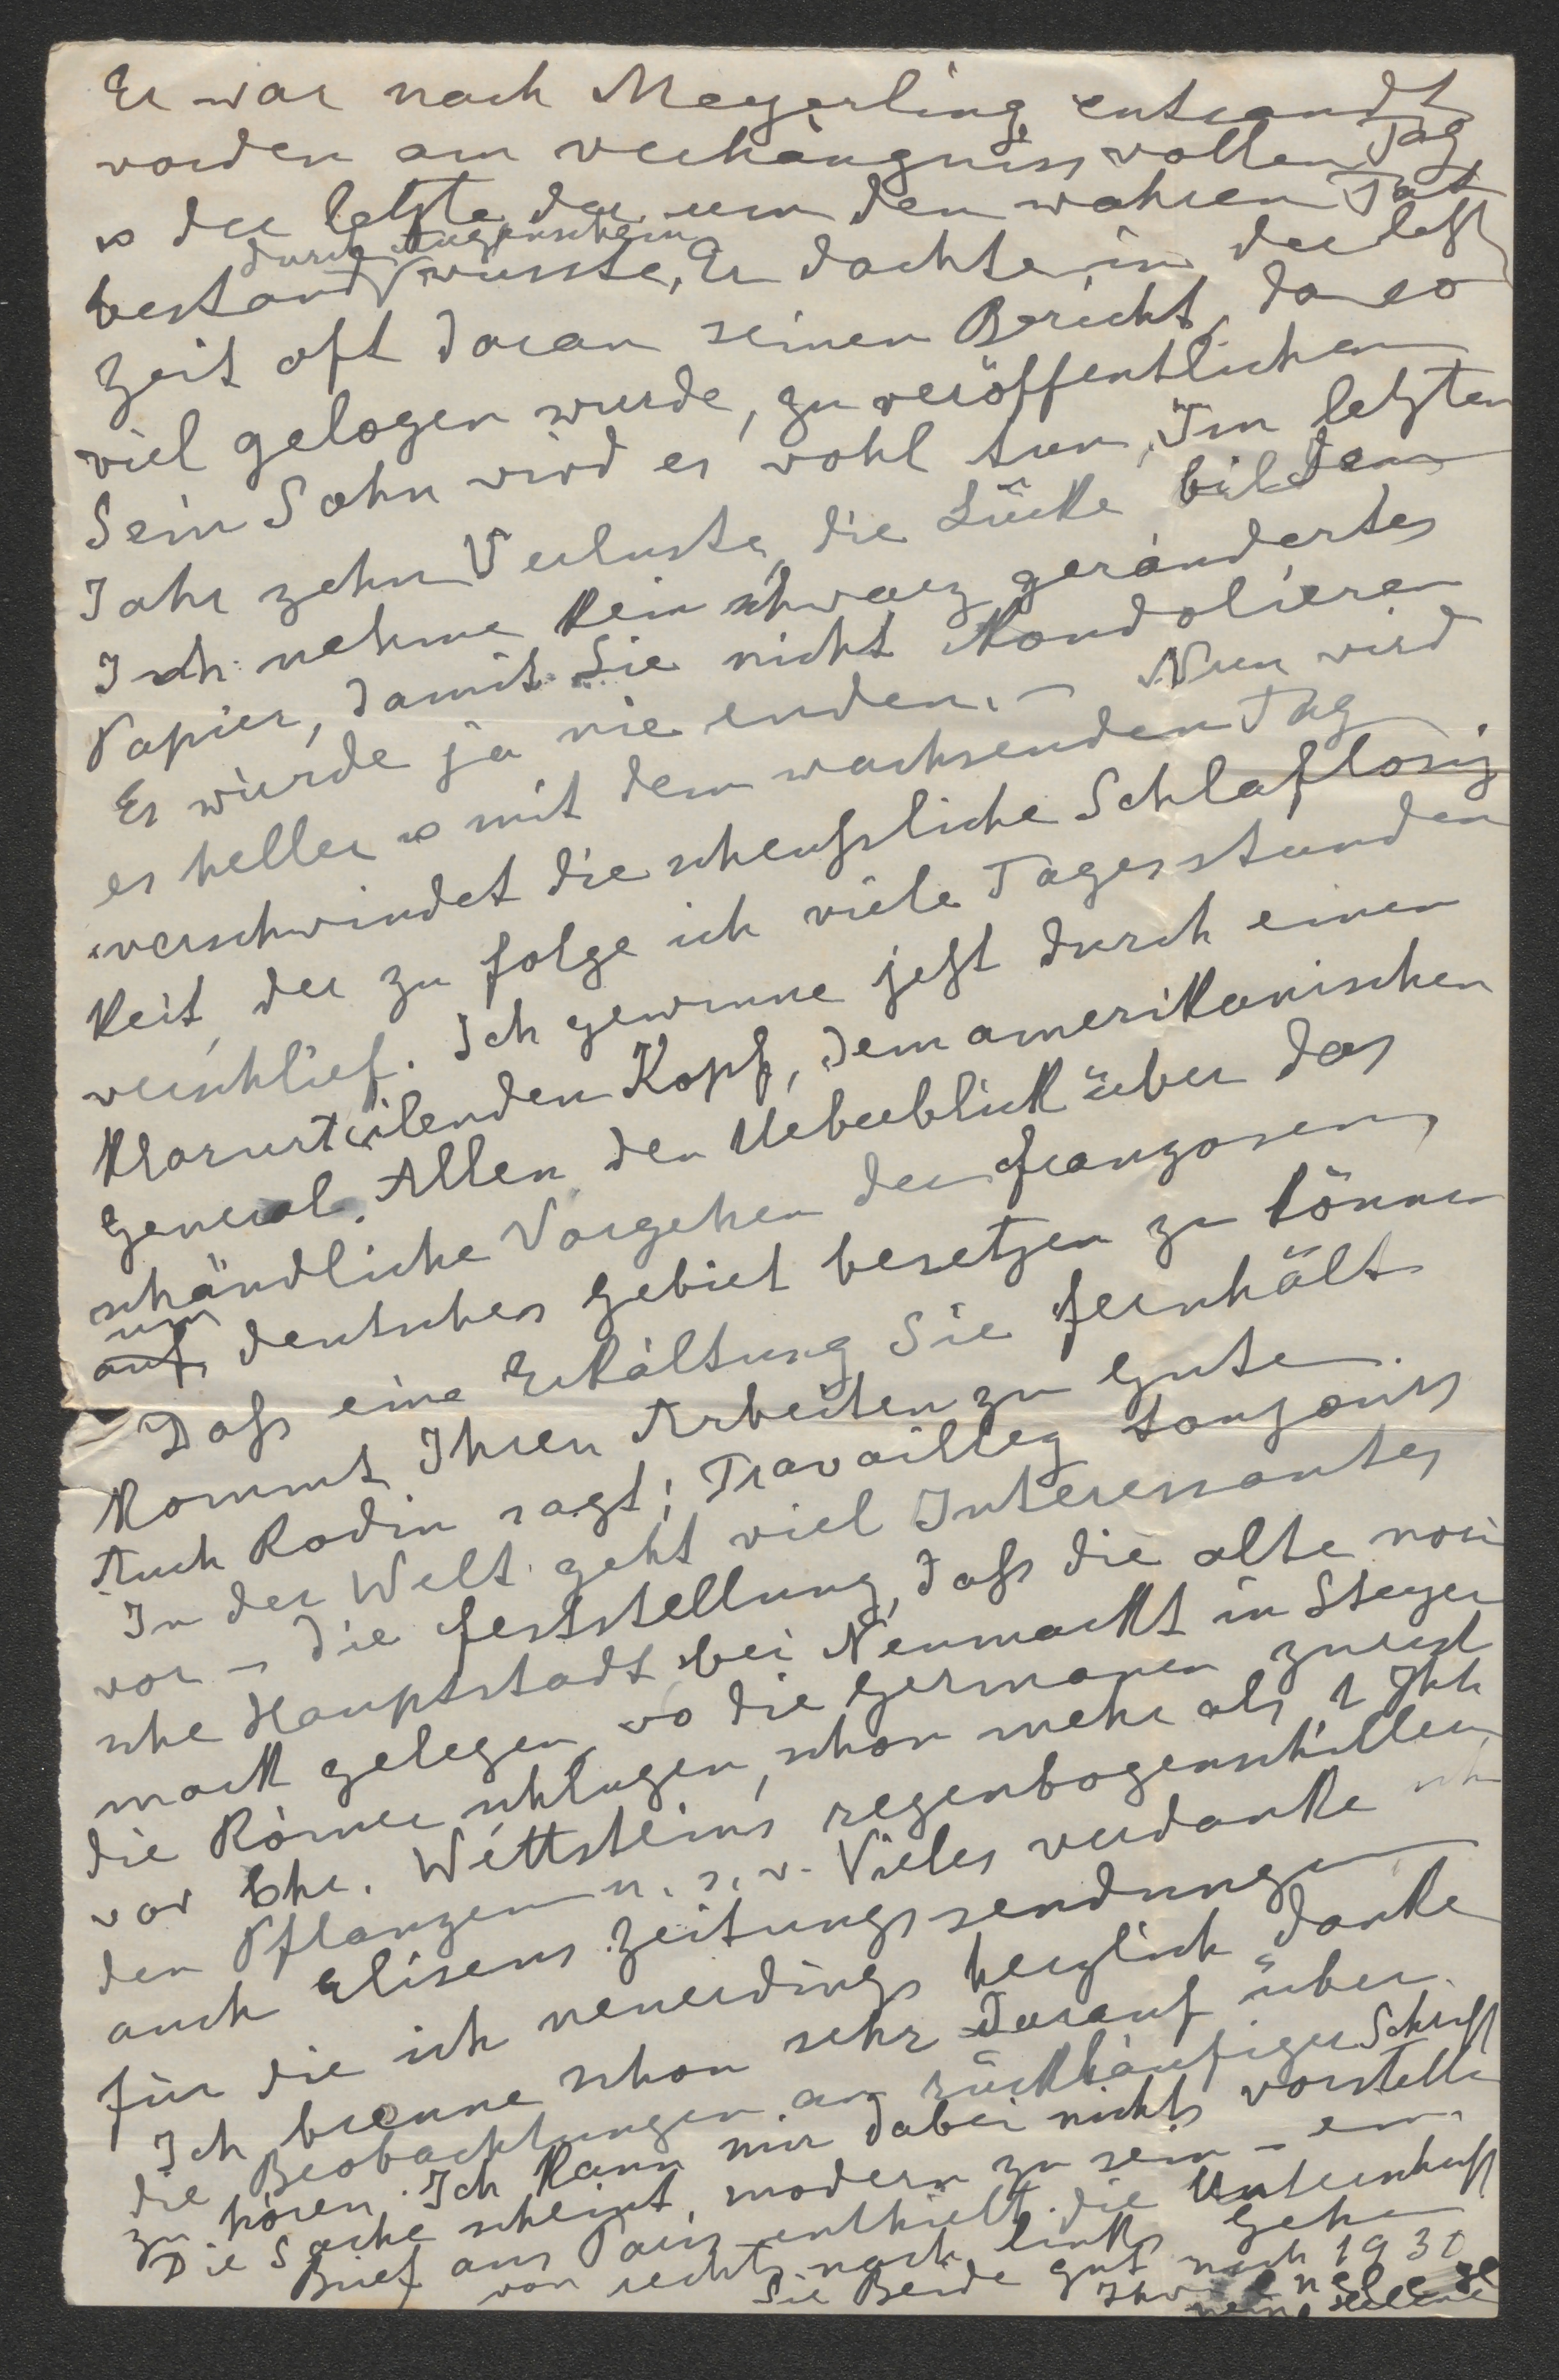 Er war nach Meyerling entsandt
worden am verhängnissvollen Tag
u der letzte der um den wahren Tat
bestand durch Augenschein wusste, Er dachte in der letzt
Zeit oft daran seinen Bericht, da so
viel gelogen wurde, zu veröffentlichen
Sein Sohn wird es wohl tun, Im letzten
Jahr zehn Verluste, die Lücke bilden
Ich nehme kein schwarz gerändertes
Papier, damit Sie nicht kondolieren
Es würde ja nie enden. – Nun wird
es heller u mit dem wachsenden Tag
verschwindet die scheussliche Schlaflosig
keit, der zu folge ich viele Tagesstunden
verschlief. Ich gewinne jetzt durch einen
klarurteilenden Kopf, dem amerikanischen
General. Allen den Ueberblick über das
schändliche Vorgehen der Franzosen,
um deutsches Gebiet besetzen zu können
Dass eine Erkältung Sie fernhält
kommt Ihren Arbeiten zu Gute.
Auch Rodin sagt: Travaillez toujours
In der Welt geht viel Interessantes
vor – die Feststellung, dass die alte nori
sche Hauptstadt bei Neumarkt in Steyer
mark gelegen, wo die Germanen zuerst
die Römer schlugen, schon mehr als 1 Jhh
vor Chr. Wettsteins regenbogenschillern
den Pflanzen u. s. w. Vieles verdanke ich
auch Elisens Zeitungssendungen
für die ich neuerdings herzlich danke
Ich brenne schon sehr darauf über
die Beobachtungen an rückläufiger Schrift
zu hören. Ich kann mir dabei nichts vorstelle
Die Sache scheint modern zu sein – ein
Brief aus Paris enthielt die Unterschrift
von rechts nach links Gehen
Sie Beide gut nach 1930
Ihre